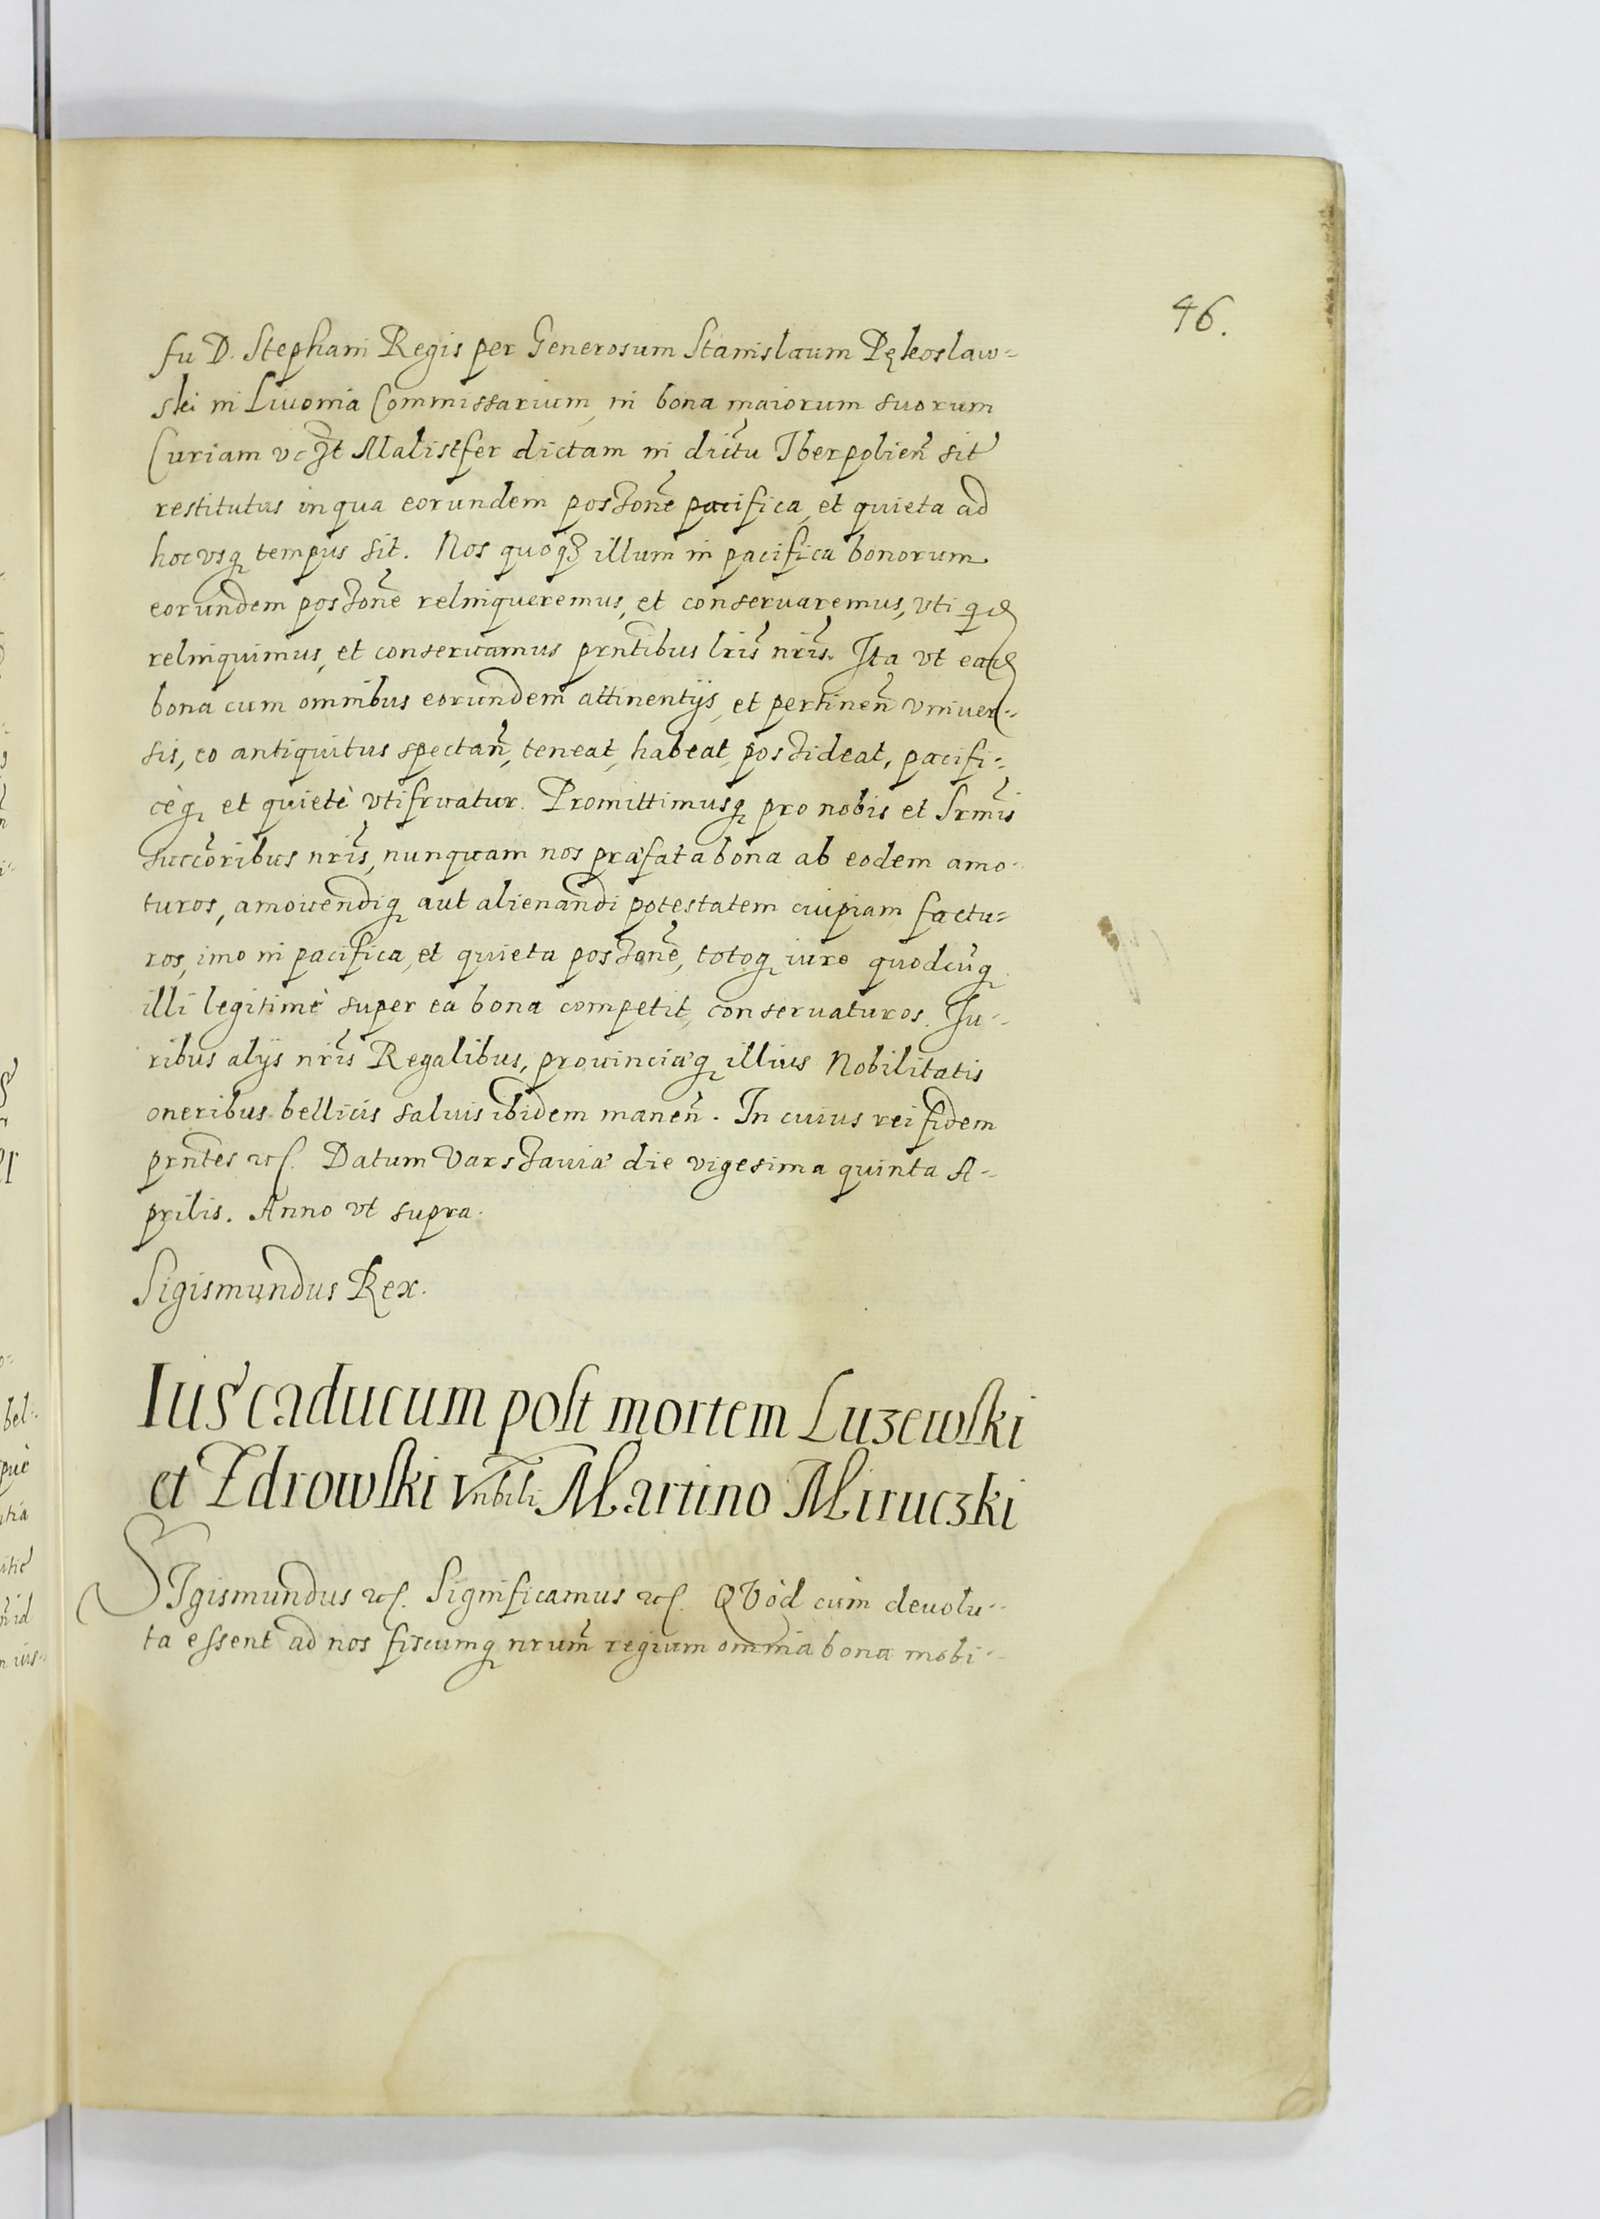 46.
su D. Stephani Regis per Generosum Stanislaum Pękoslaw=
ski in Liuonia Commissarium, in bona maiorum suorum
Curiam Malistfer dictam in dictu Iberpolien̄ sit
restitutus in qua eorundem possione pacifica, et quieta ad
hoc vsq tempus sit. Nos quoqꝫ illum in pacifica bonorum
eorundem possione relinqueremus, et conseruaremus, vti
relinquimus, et conseruamus prntibus lris nris. Ita vt
bona cum omnibus eorundem attinentijs, et pertinen̄ vniuer=
sis, eo antiquitus spectan̄, teneat, habeat, possideat, pacifi=
cèq et quietè vtifruatur. Promittimusq pro nobis et Srmis
succoribus nris, nunquam nos præfata bona ab eodem amo=
turos, amouendiq aut alienandi potestatem cuipiam factu=
ros, imo in pacifica, et quieta possione, totoq iure quodcūq
illi legitimè super ea bona competit, conseruaturos. Iu=
ribus alijs nris Regalibus, prouinciæq illius Nobilitatis
oneribus bellicis saluis ibidem manen̄. In cuius rei fidem
prntes etc. Datum Varssauiæ die vigesima quinta A=
prilis. Anno vt supra.
Sigismundus Rex.
Ius caducum post mortem Luzewski
et Zdrowski Nbili Martino Miruczki
SIgismundus etc. Significamus etc. QVòd cùm deuolu=
ta essent ad nos fiscumq nrum regium omnia bona mobi=